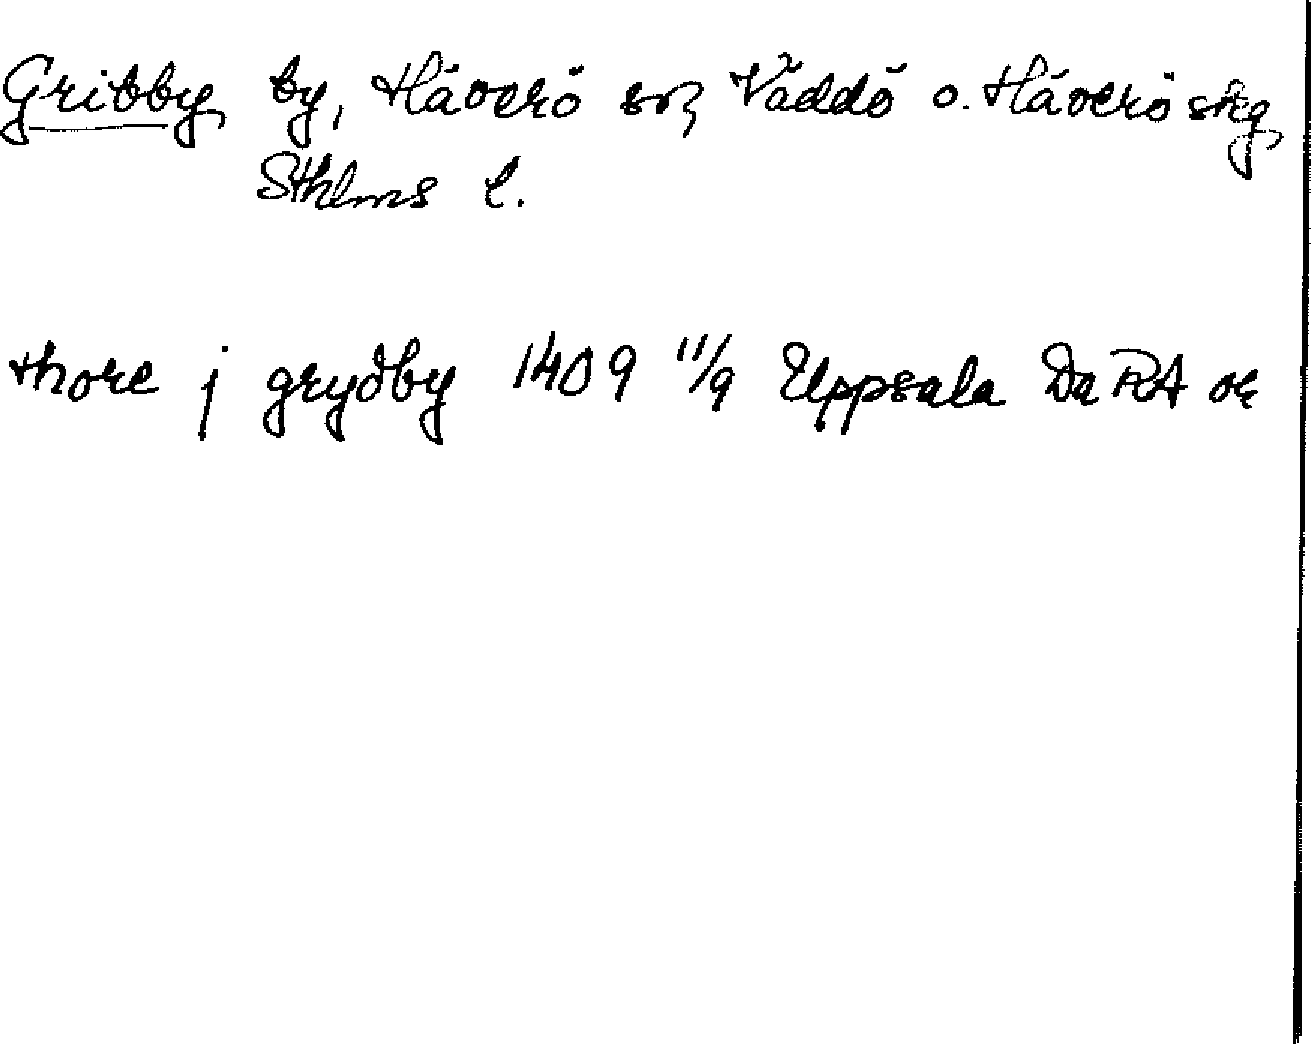 Gribby by, Häverö sn, Väddö o. Häverö skg
Sthlms l.
thore j grydby 1409 11/9 Uppsala Da RA or